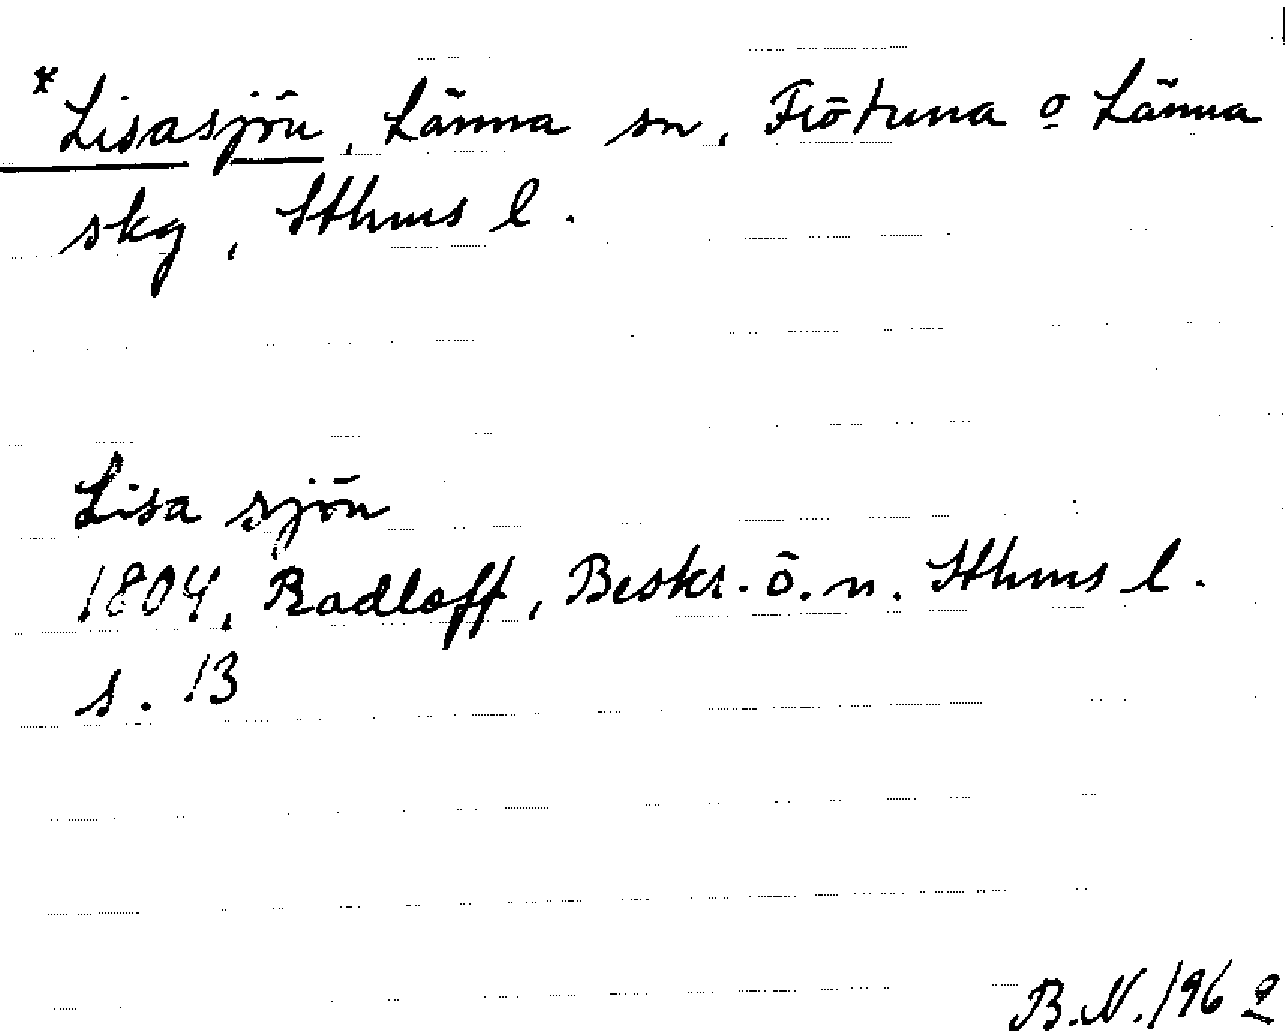 *Lisasjön, Länna sn, Frötuna o Länna
skg, Sthms l.
Lisa sjön
1804, Radloff, Beskr. ö. n. Sthms l.
s. 13
B.N. 1962